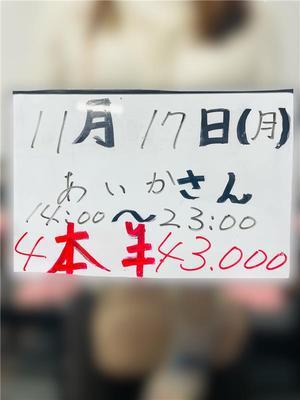 11月17日(月)
あいかさん
14:00～23:00
4本 ¥43.000